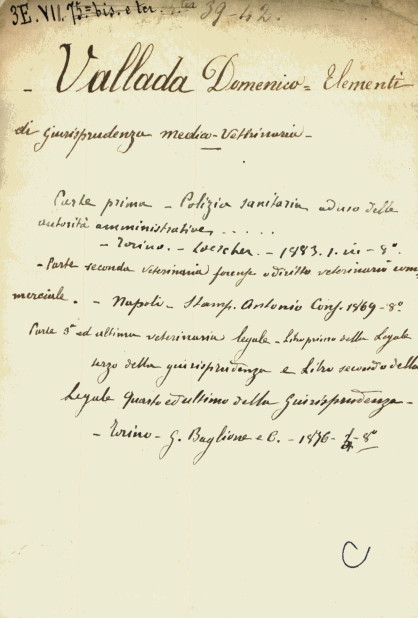 3E. VII. 75= bis. e ter. 39-42.
- Vallada Domenico = Elementi
di giurisprudenza medico-Vettrinaria -
Parte prima - Polizia sanitaria ad uso delle
autorità amministrative, . . . . .
- Torino. - Loescher. - 1883. 1. in - 8°.
- Parte seconda veterinaria forense o diritto veterinario com=
merciale. - Napoli - Stamp. Antonio Conf. 1869 - 8°
Parte 3ª ed ultima veterinaria legale - Libro primo della Legale
terzo della giurisprudenza e Libro secondo della
Legale quarto ed ultimo della Giurisprudenza -
- Torino - G. Baglione e C. - 1876 - - 8°
C